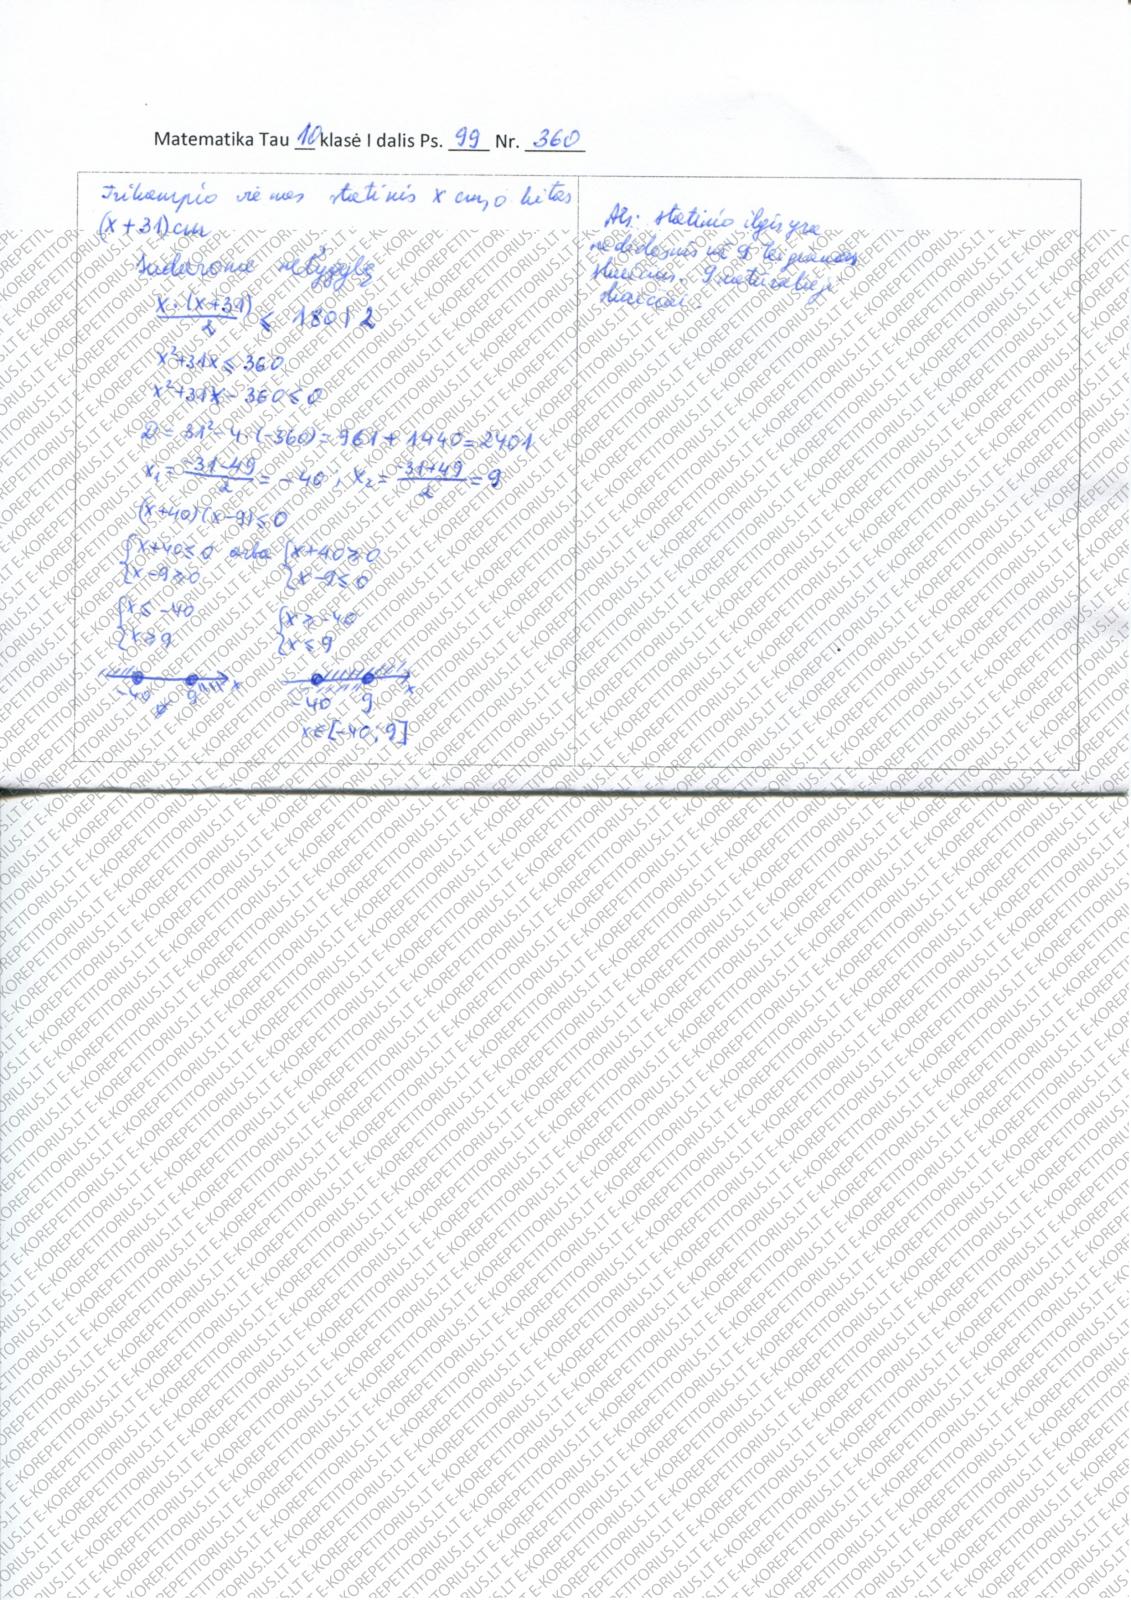 Matematika Tau 10 klasė I dalis Ps. 99 Nr. 360
Trikampio vienas statinis x cm, o kitas
(x+31) cm
Sudarome nelygybę
x·(x+31)/2 ≤ 180 | 2
x²+31x ≤ 360
x²+31x-360 ≤ 0
D = 31²-4·(-360) = 961+1440 = 2401
x₁ = (-31-49)/2 = -40; x₂ = (-31+49)/2 = 9
(x+40)(x-9) ≤ 0
{x+40 ≤ 0 arba {x+40 ≥ 0
{x-9 ≥ 0 {x-9 ≤ 0
{x ≤ -40 {x ≥ -40
{x ≥ 9 {x ≤ 9
-40 9 x -40 9 x
∅
x∈[-40; 9]
Ats: statinio ilgis yra
nedidesnis už 9 teigiamas
skaičius. 9 natūralieji
skaičiai.
E-KOREPETITORIUS.LT